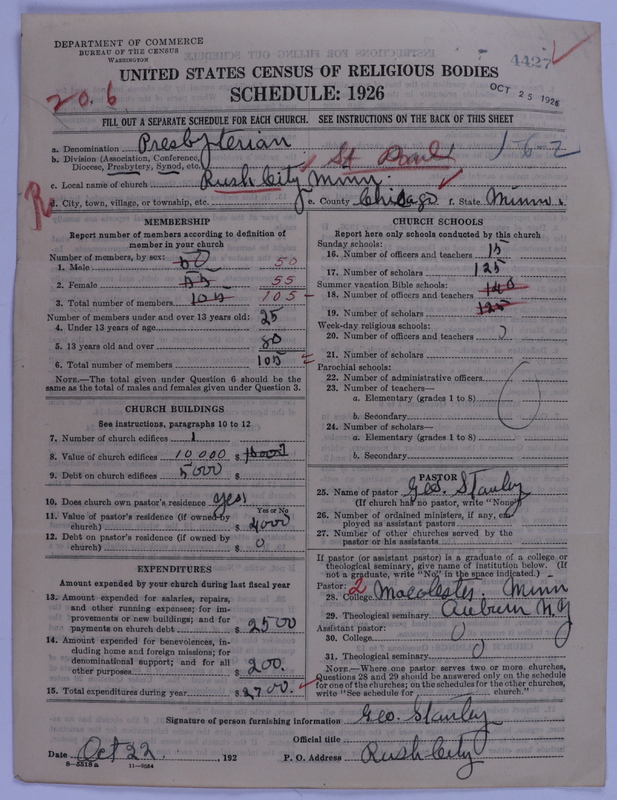 DEPARTMENT OF COMMERCE
BUREAU OF THE CENSUS
WASHINGTON
4427
UNITED STATES CENSUS OF RELIGIOUS BODIES
SCHEDULE: 1926
OCT 25 1926
20.6
FILL OUT A SEPARATE SCHEDULE FOR EACH CHURCH. SEE INSTRUCTIONS ON THE BACK OF THIS SHEET
a. Denomination Presbyterian
b. Division (Association, Conference, Diocese, Presbytery, Synod, etc.) St Paul 1-6-2
c. Local name of church Rush City Minn.
R
d. City, town, village, or township, etc. e. County Chicago f. State Minn.
MEMBERSHIP
Report number of members according to definition of member in your church
Number of members, by sex:
1. Male 50 50
2. Female 55 55
3. Total number of members 105 105
Number of members under and over 13 years old:
4. Under 13 years of age 25
5. 13 years old and over 80
6. Total number of members 105
NOTE.—The total given under Question 6 should be the same as the total of males and females given under Question 3.
CHURCH BUILDINGS
See instructions, paragraphs 10 to 12
7. Number of church edifices 1
8. Value of church edifices 10000 $
9. Debt on church edifices 5000 $
10. Does church own pastor's residence yes
Yes or No
11. Value of pastor's residence (if owned by church) $ 4000
12. Debt on pastor's residence (if owned by church) $ 0
EXPENDITURES
Amount expended by your church during last fiscal year
13. Amount expended for salaries, repairs, and other running expenses; for improvements or new buildings; and for payments on church debt $ 2500
14. Amount expended for benevolences, including home and foreign missions; for denominational support; and for all other purposes $ 200.
15. Total expenditures during year $ 2700.
CHURCH SCHOOLS
Report here only schools conducted by this church
Sunday schools:
16. Number of officers and teachers 15
17. Number of scholars 125
Summer vacation Bible schools:
18. Number of officers and teachers 140
19. Number of scholars 125
Week-day religious schools:
20. Number of officers and teachers
21. Number of scholars
Parochial schools:
22. Number of administrative officers
23. Number of teachers—
a. Elementary (grades 1 to 8)
b. Secondary
24. Number of scholars—
a. Elementary (grades 1 to 8)
b. Secondary
PASTOR
25. Name of pastor Geo. Stanley
(If church has no pastor, write "None")
26. Number of ordained ministers, if any, employed as assistant pastors
27. Number of other churches served by the pastor or his assistants
If pastor (or assistant pastor) is a graduate of a college or theological seminary, give name of institution below. (If not a graduate, write "No" in the space indicated.)
Pastor: 2
28. College Macalester. Minn
29. Theological seminary Auburn N.Y
Assistant pastor:
30. College 0
31. Theological seminary 0
NOTE.—Where one pastor serves two or more churches, Questions 28 and 29 should be answered only on the schedule for one of the churches; on the schedules for the other churches, write "See schedule for church."
Signature of person furnishing information Geo. Stanley
Official title
Date Oct 22, 192 P. O. Address Rush City
8—5518a 11—9084